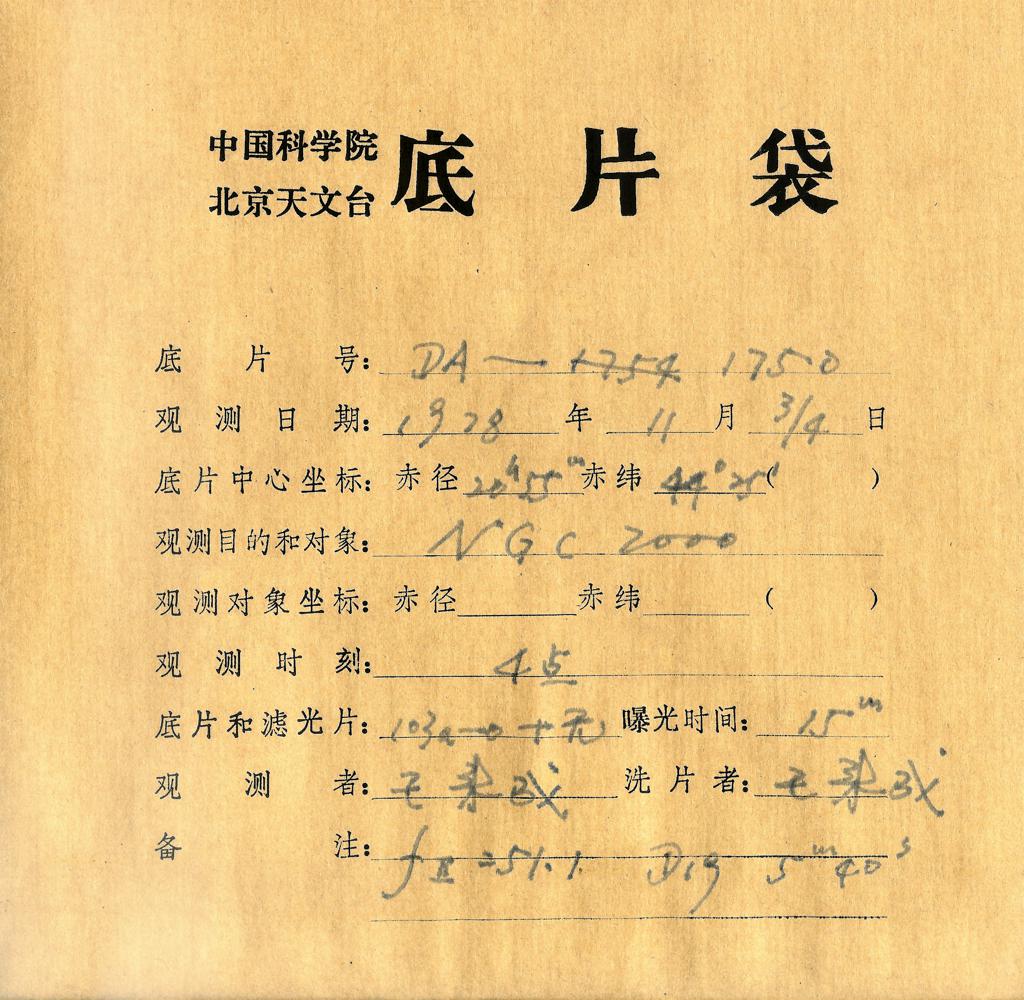 中国科学院
北京天文台 底片袋
底片号: DA— 1754 1750
观测日期: 1978 年 11 月 3/4 日
底片中心坐标: 赤径 20h55m 赤纬 44°25′ ( )
观测目的和对象: NGC 2000
观测对象坐标: 赤径 赤纬 ( )
观测时刻: 4点
底片和滤光片: 103a-O + 无 曝光时间: 15m
观测者: 洗片者:
备注: fⅡ=51.1 5m40s